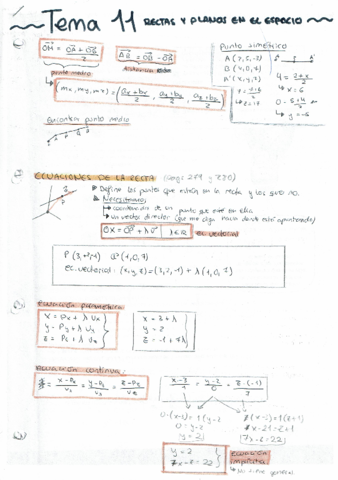 Tema 11 RECTAS Y PLANOS EN EL ESPACIO
OM = (OA + OB)/2
AB = OB - OA
punto medio
(mx, my, mz) = (ax+bx/2, ay+by/2, az+bz/2)
Encontrar punto medio
Punto simétrico
A (2, 5, -3)
B (4, 0, 7)
A' (x, y, z)
4 = 2+x/2
x = 6
0 = 5+y/2
y = -5
z = 17
ECUACIONES DE LA RECTA (págs 269 y 270)
Define los puntos que están en la recta y los que no.
Necesitamos
coordenadas de un punto que esté en ella
un vector director (que me diga hacia dónde está apuntando)
OX = OP + λv | λ∈R
ec vectorial
P (3, 2, -1) v (1, 0, 7)
ec. vectorial: (x, y, z) = (3, 2, -1) + λ (1, 0, 7)
Ecuación paramétrica
x = Px + λ Vx
y = Py + λ Vy
z = Pz + λ Vz
x = 3 + λ
y = 2
z = -1 + 7λ
Ecuación continua:
x-Px/Vx = y-Py/Vy = z-Pz/Vz
x-3/1 = y-2/0 = z-(-1)/7
0·(x-3) = 1(y-2
0 = y-2
y = 2
7(x-3) = 1(z+1)
7x-21 = z+1
7x-z = 22
y = 2
7x-z = 22
ecuación implícita